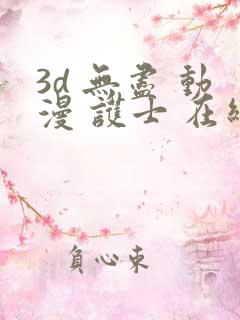 3d 無盡 動
漫 護士 在線
負心束